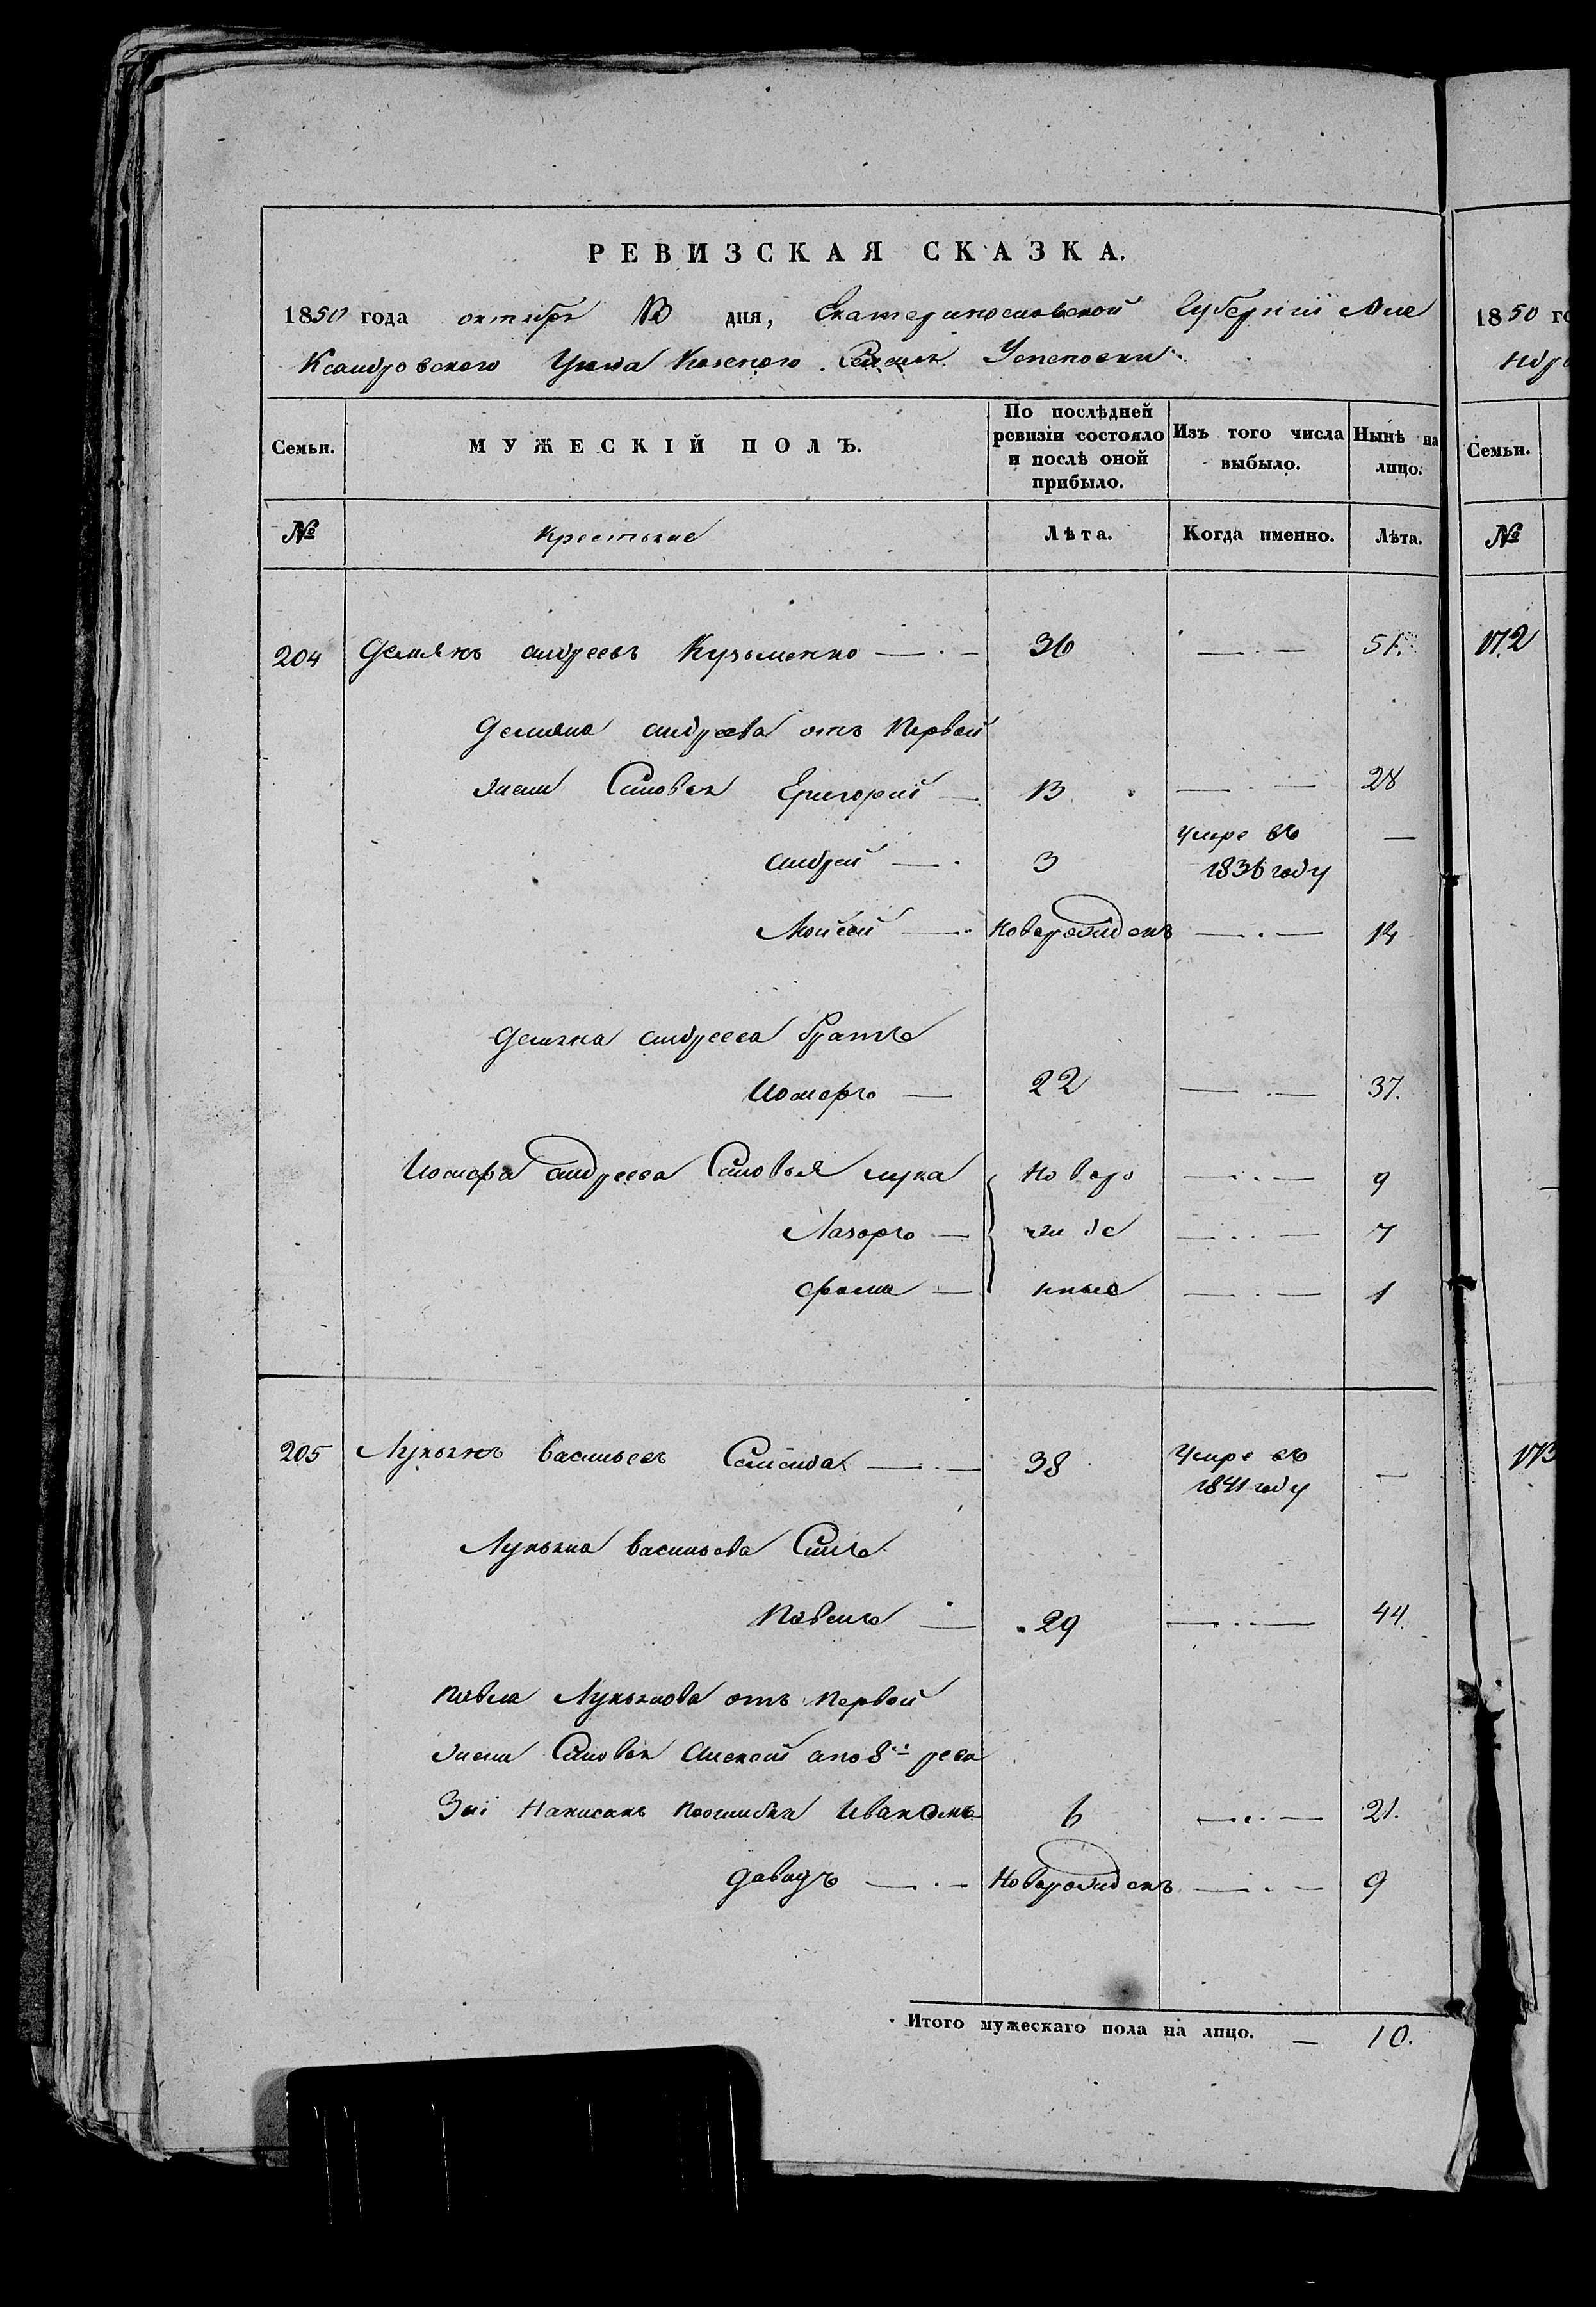 РЕВИЗСКАЯ СКАЗКА.
1850 года октября 13 дня, Екатеринославской Губернии Але
ксандровского Уезда Казеного Селеня Успеновки
Семьи. МУЖЕСКІЙ ПОЛЪ. По послѣдней ревизіи состояло и послѣ оной прибыло. Изъ того числа выбыло. Нынѣ на лицо.
№ Крестьяне Лѣта. Когда именно. Лѣта.
204 Демянъ андреевъ Кузьменко 36 51.
Демяна андреева отъ Первой
жены Сыновья Григорий 13 28
андрей 3 умре въ 1836 году
Мойсей Новорожденъ 14
Демяна андреева братъ
Иосифъ 22 37.
Иосифа андреева Сыновья лука Новоро 9
Лазоръ жде 7
фома нные 1
205 Лукьянъ васильевъ 38 Умре въ 1841 году
Лукьяна васильева Сынъ
Павелъ 29 44.
Павла Лукьянова отъ Первой
жены Сыновья Алексей а по 8й реви
Зиї Написанъ Поошибки Иваномъ 6 21.
давидъ Новорожденъ 9
Итого мужескаго пола на лицо. 10.
1850 го
Семьи.
№
172
173